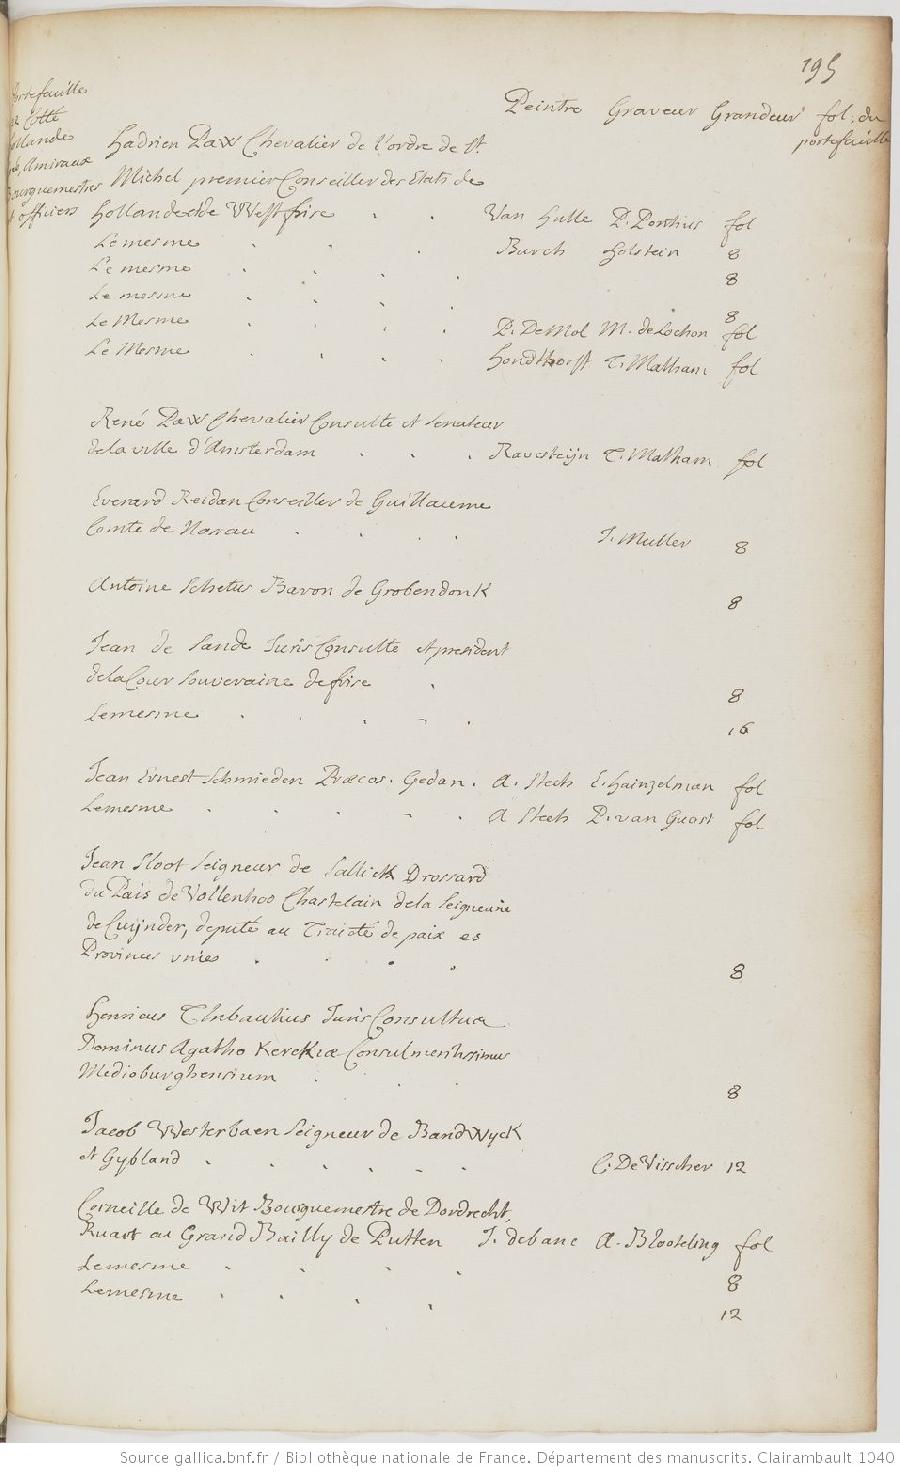 195
Portefeuille
Cotté
hollande
Amiraux
Bourguemestres
et officiers
Peintre Graveur Grandeur fol. du
portefeuille
Hadrien Paw Chevalier de l'ordre de St.
Michel premier Conseiller des Etats de
Hollande et de West frise . . Van hulle P. Pontius fol
Le mesme . . . Burch Holstein 8
Le mesme . . . . 8
Le mesme . . . . 8
Le Mesme . . . P. De Mol M. de Lochon fol
Le Mesme . . . . Hondthorst T. Matham fol
René Paw Chevalier Consulte et Senateur
de la ville d'Amsterdam . . . Ravesteijn T. Matham fol
Everard Reidan Conseiller de Guillaume
Comte de Nassau . . . . J. Muller 8
Antoine Schetus Baron de Grobendonk 8
Jean de Sande Juris Consulte et president
de la Cour Souveraine de frise . 8
Le mesme . . . . 16
Jean Ernest Schmieden Præcos. Gedan. A. Stech E. Hainzelman fol
Le mesme . . . . . A Stech P. van Guost fol
Jean Sloot Seigneur de Sallick Drossard
du Païs de Vollenhoo Chastelain de la Seigneurie
de Cuijnder, deputé au Traicté de paix es
Provinces unies . . . . 8
Henricus Thibautius Juris Consultus
Dominus Agatho Kerckiæ Consul meritissimus
Medioburghensium . . . 8
Jacob Westerbaen Seigneur de Bandwyck
et Gybland . . . . . C. De Visscher 12
Corneille de Wit Bourguemestre de Dordrecht,
Ruart ou Grand Bailly de Putten J. de bane A. Blooteling fol
Le mesme . . . . 8
Le mesme . . . . 12
Source gallica.bnf.fr / Bibliothèque nationale de France. Département des manuscrits. Clairambault 1040